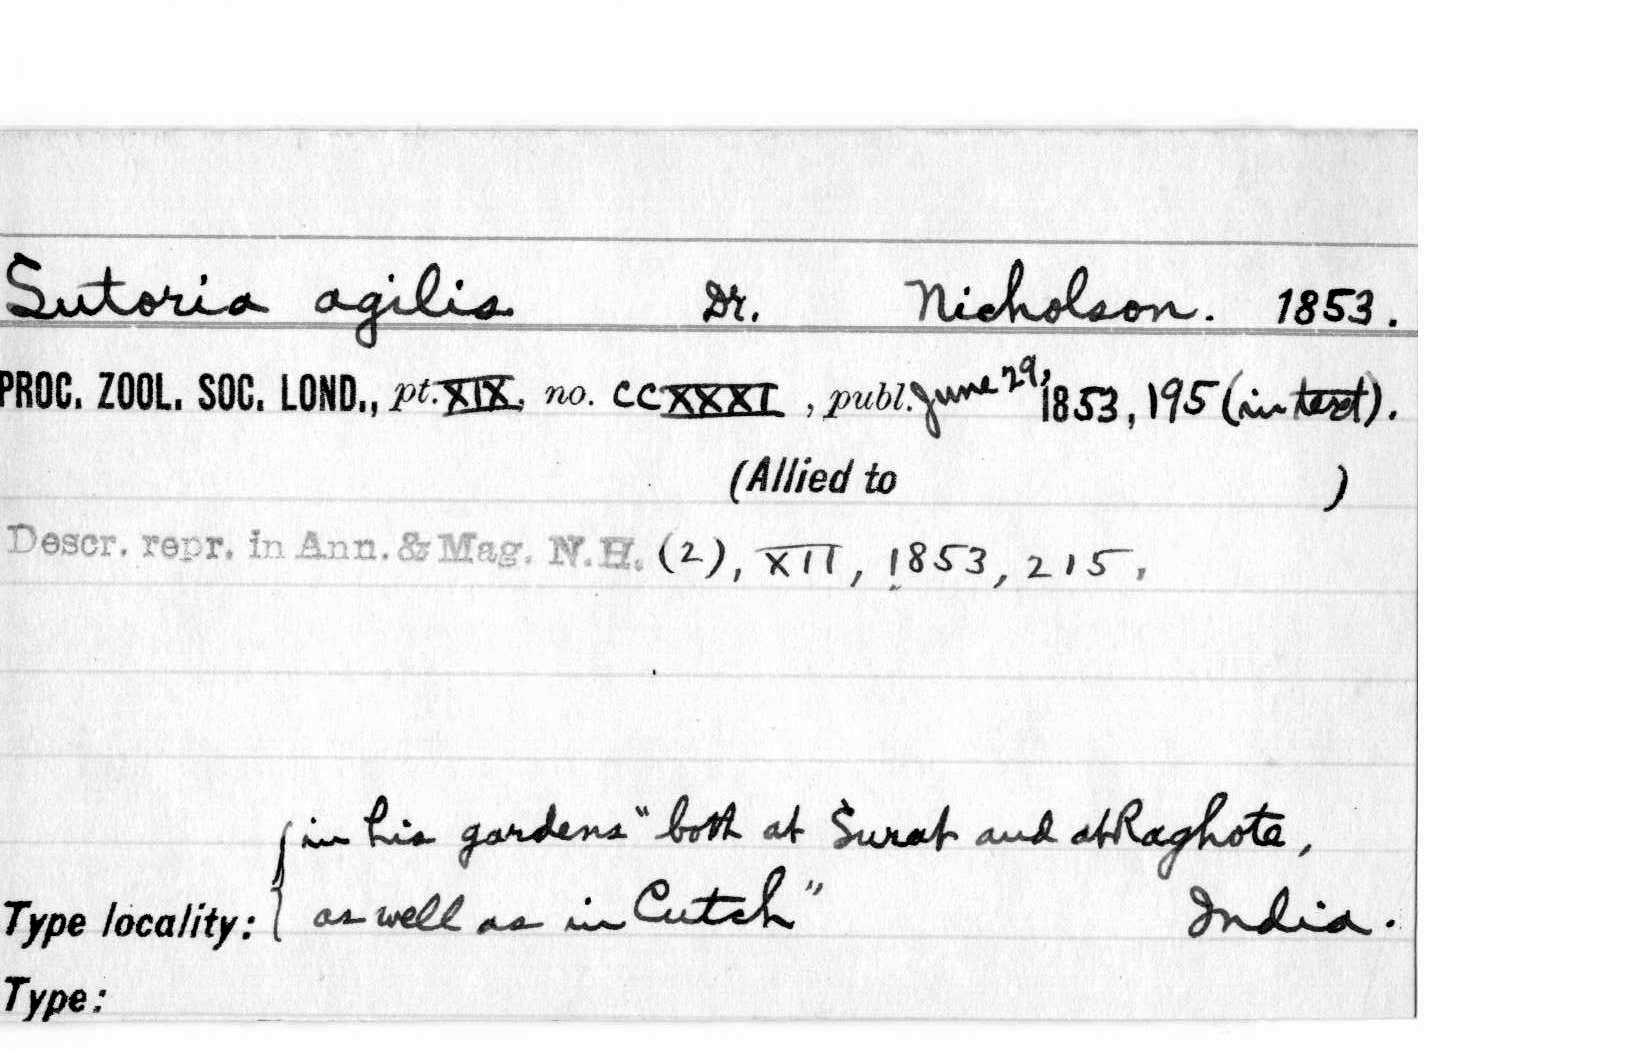 Sutoria agilis. Dr. Nicholson. 1853.
PROC. ZOOL. SOC. LOND., pt. XIX, no. CCXXXI, publ. June 29, 1853, 195 (in text).
(Allied to )
Descr. repr. in Ann. & Mag. N.H. (2), XII, 1853, 215,
in his gardens "both at Surat and at Raghote,
Type locality: as well as in Cutch" India.
Type: